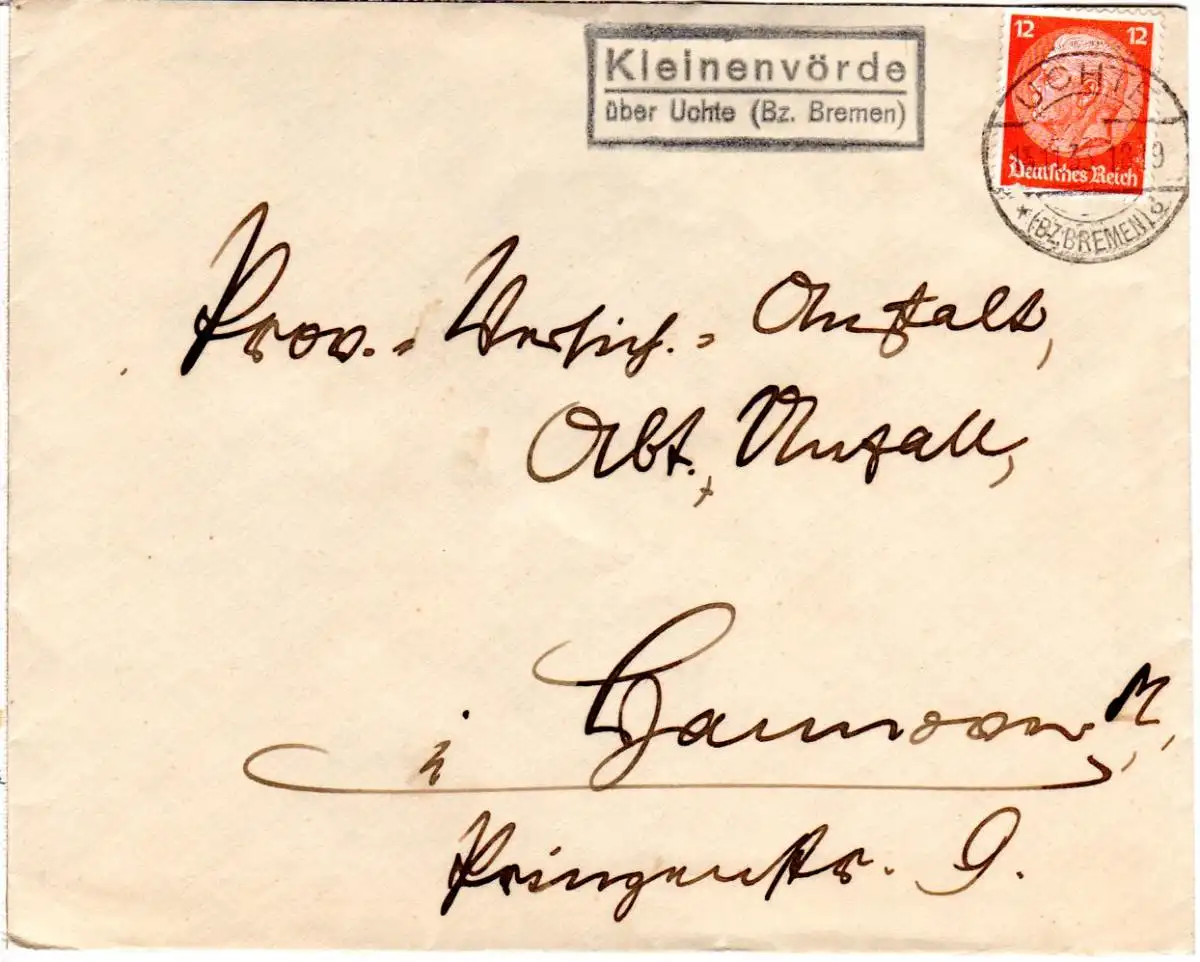 Kleinenvörde
über Uchte (Bz. Bremen)
12 12
Deutsches Reich
UCHTE
(BZ.BREMEN)
Prov.-Versich.-Anstalt,
Abt. Unfall,
Hannover M,
Prinzenstr. 9.